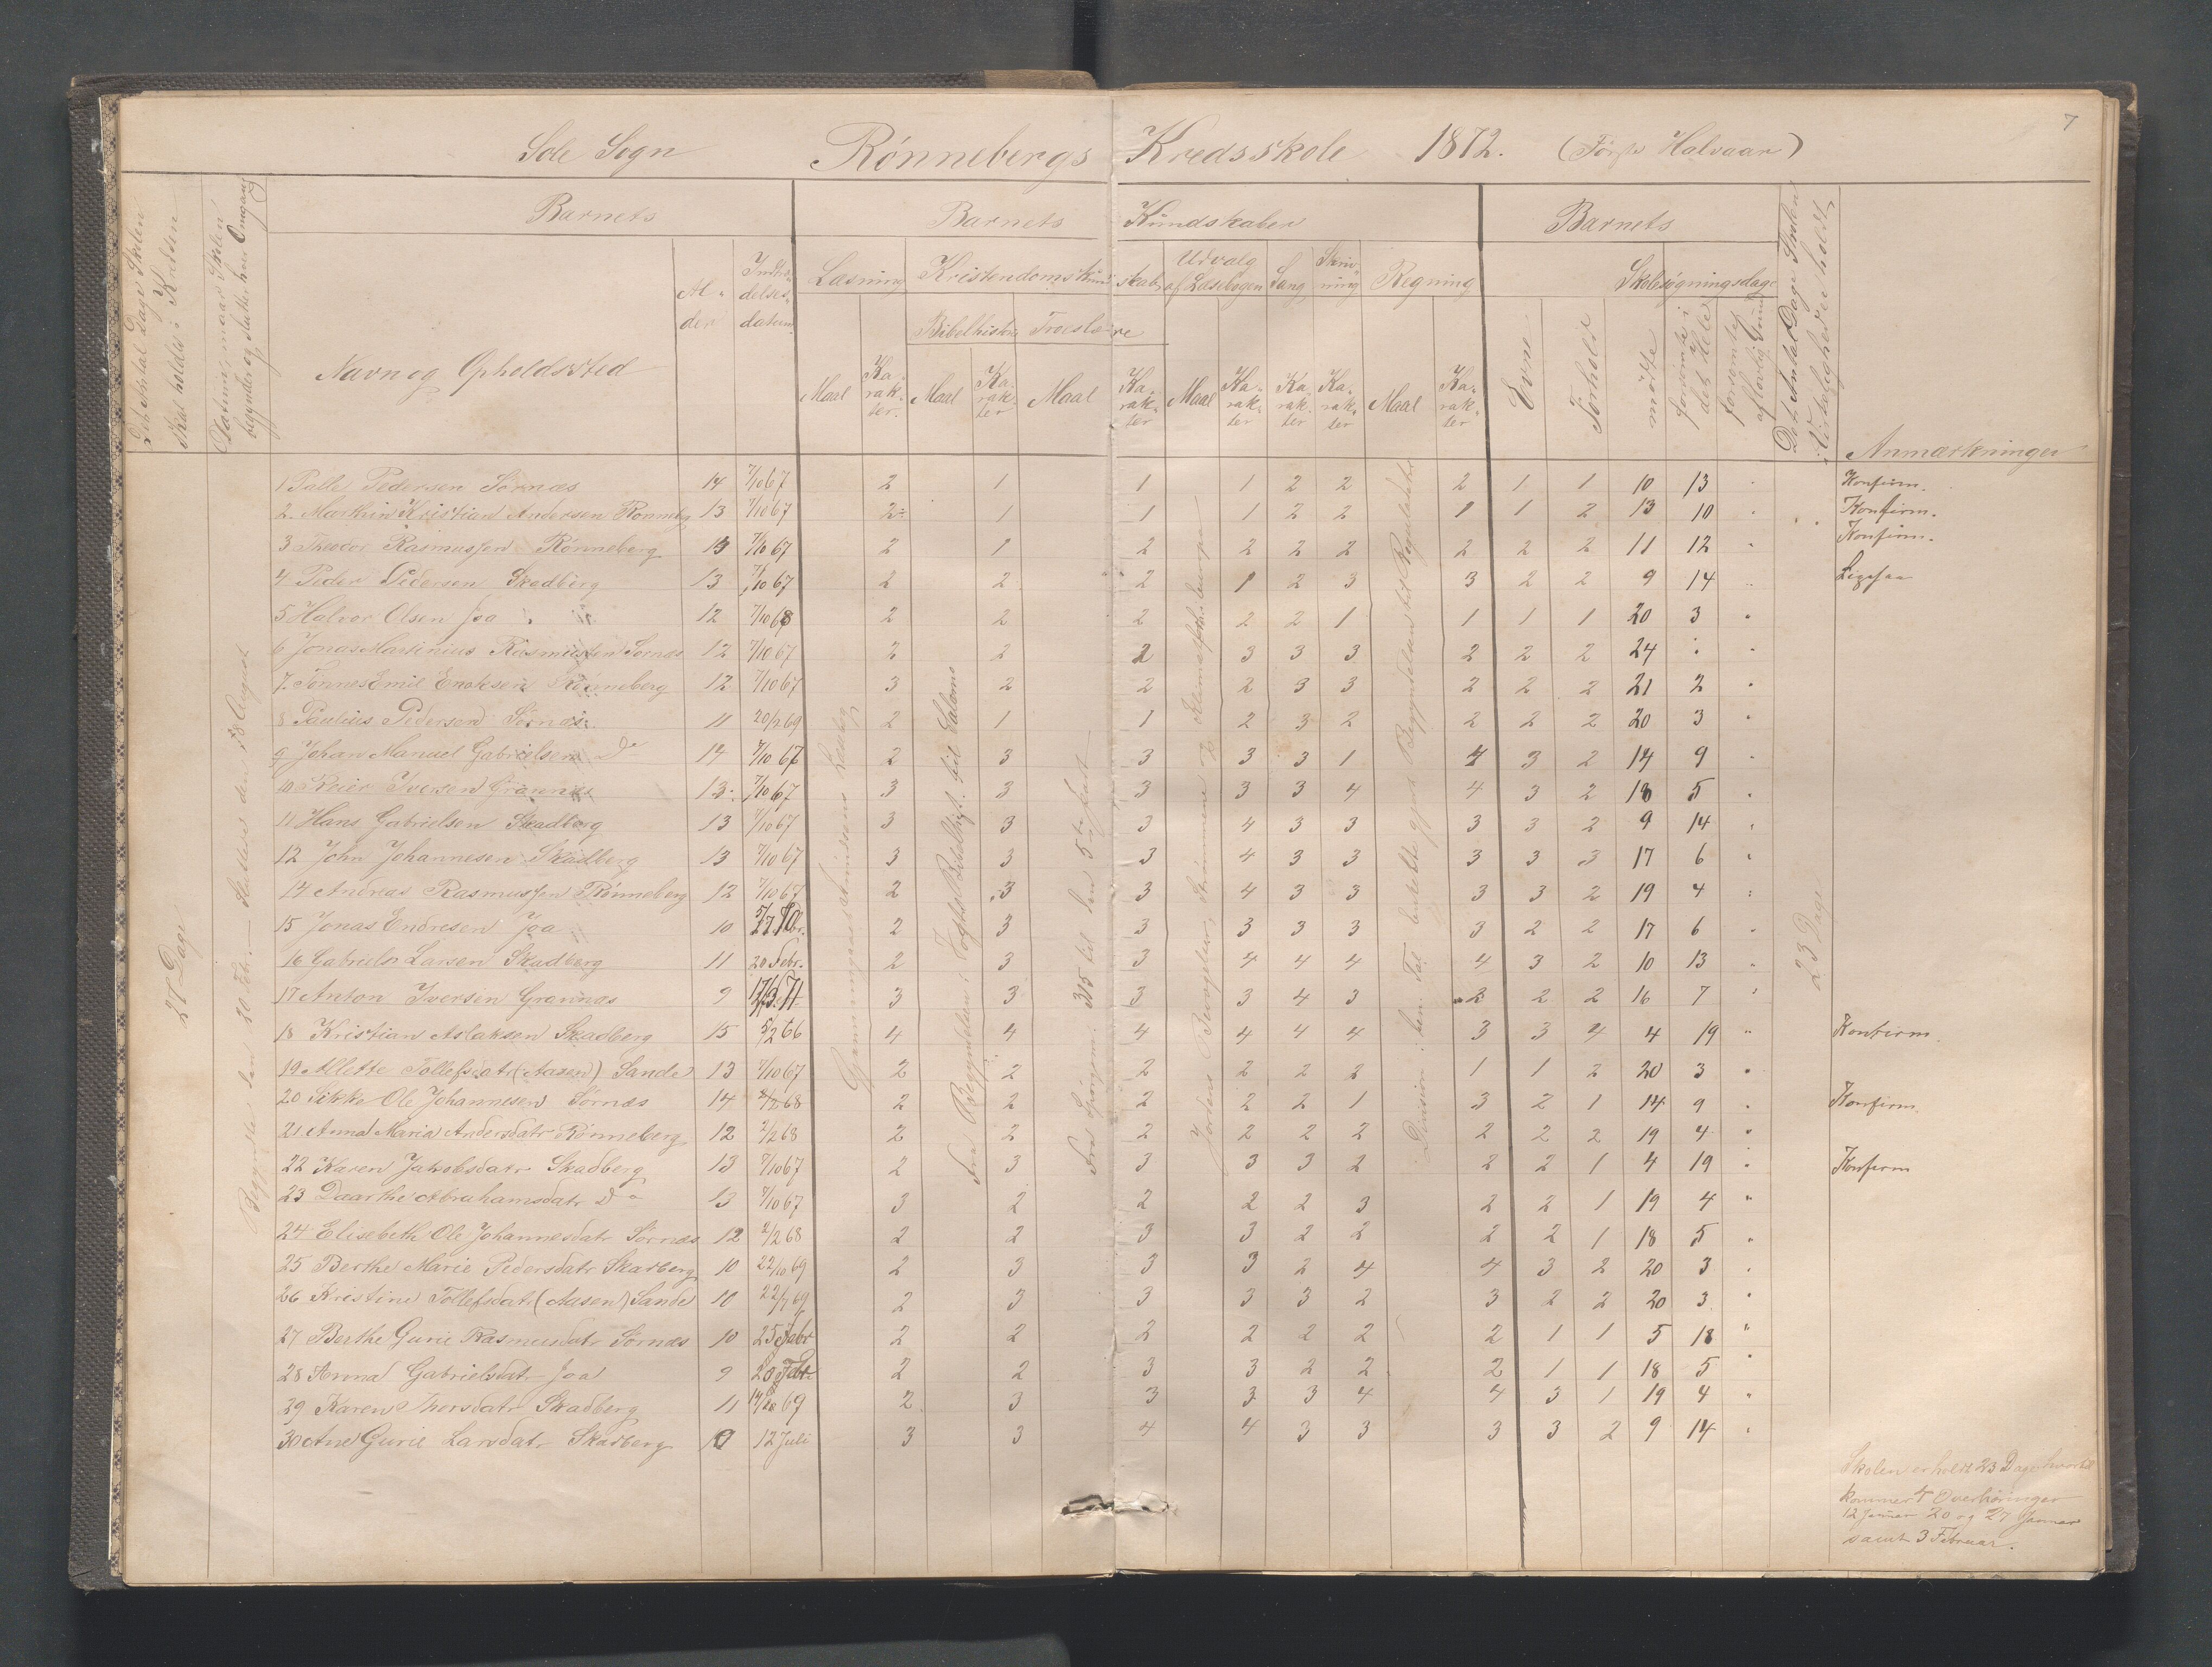 7
Sole Sogn Rønnebergs Kredsskole 1872. (Første Halvaar)
Det Antal Dage Skolen skal holdes i Kredsen
Datum, naar Skolen begynder og slutter hver Omgang
Barnets Barnets Kundskaber Barnets
Navn og Opholdssted
Al- der
Indtræ- delses- datum
Læsning Kristendomskund skab Udvalg af Læsebogen Sang Skriv- ning Regning
Bibelhistorie Troeslære
Maal Ka- rak- ter. Maal Ka- rak- ter Maal Ka- rak- ter Maal Ka- rak- ter Ka- rak- ter Ka- rak- ter Maal Ka- rak- ter
Evne Forhold
Skolesøgningsdage
mødte forsømte i det Hele forsømte af lovlig Grund
Det Antal Dage Skolen i Virkeligheden holdt
Anmærkninger
27 Dage
Begyndte den 20 Febr. – Sluttede den 28 August
23 Dage
1 Palle Pedersen Sørnæs 14 7/10 67 2 1 1 1 2 2 2 1 1 10 13 Konfirm.
2 Markin Kristian Andersen Rønneberg 13 7/10 67 2 1 1 1 2 2 1 1 2 13 10 Konfirm.
3 Theodor Rasmussen Rønneberg 13 7/10 67 2 1 2 2 2 2 2 2 2 11 12 Konfirm.
4 Peder Pedersen Skadberg 13 7/10 67 2 2 2 1 2 3 3 2 2 9 14 Ligesaa
5 Halvor Olsen Joa 12 7/10 68 2 2 2 2 2 1 1 1 1 20 3
6 Jonas Martinius Rasmussen Sørnæs 12 7/10 67 2 2 2 3 3 3 2 2 2 24
7 Tønnes Emil Enoksen Rønneberg 12 7/10 67 3 2 2 2 3 3 2 2 2 21 2
8 Paulius Pedersen Sørnæs 11 20/2 69 2 1 1 2 3 2 2 2 2 20 3
9 Johan Manuel Gabrielsen Do 14 7/10 67 2 3 3 3 3 1 4 3 2 14 9
10 Reier Iversen Grannæs 13 7/10 67 3 3 3 3 3 4 4 3 2 18 5
11 Hans Gabrielsen Skadberg 13 7/10 67 3 3 3 4 3 3 3 3 2 9 14
12 John Johannesen Skadberg 13 7/10 67 3 3 3 4 3 3 3 3 3 17 6
14 Andreas Rasmussen Rønneberg 12 7/10 67 2 3 3 4 3 3 3 3 2 19 4
15 Jonas Endresen Joa 10 2 3 3 3 3 3 3 2 2 17 6
16 Gabriel Larsen Skadberg 11 20 Febr. 2 3 3 4 4 4 4 3 2 10 13
17 Anton Iversen Grannæs 9 3 3 3 3 4 3 2 2 2 16 7
18 Kristian Aslaksen Skadberg 15 5/2 66 4 4 4 4 4 4 3 3 4 4 19 Konfirm.
19 Alette Tollefsdatr (Aasen) Sande 13 7/10 67 2 2 2 2 2 2 1 1 2 20 3
20 Sikke Ole Johannesen Sørnæs 14 2/2 68 2 2 2 2 2 1 3 2 1 14 9 Konfirm.
21 Anna Maria Andersdatr Rønneberg 12 2/2 68 2 2 2 2 2 2 2 2 2 19 4
22 Karen Jakobsdatr Skadberg 13 7/10 67 2 3 3 3 3 2 2 2 1 4 19 Konfirm
23 Daarthe Abrahamsdatr Do 13 7/10 67 3 2 2 2 2 3 2 2 1 19 4
24 Elisebeth Ole Johannesdatr Sørnæs 12 2/2 68 2 2 3 3 2 2 2 2 1 18 5
25 Berthe Marie Pedersdatr Skadberg 10 22/10 69 2 3 3 3 2 4 4 3 2 20 3
26 Kristine Tollefsdatr (Aasen) Sande 10 22/7 69 2 3 3 3 3 2 3 2 2 20 3
27 Berthe Gurie Rasmusdatr Sørnæs 10 25 Febr 2 2 2 2 2 2 2 1 1 5 18
28 Anna Gabrielsdatr Joa 9 20 Febr 2 2 3 3 2 2 2 1 1 18 5
29 Karen Thorsdatr Skadberg 11 2 3 3 3 3 4 4 3 1 19 4
30 Ane Gurie Larsdatr Skadberg 12 Juli 3 3 4 4 3 3 3 3 2 9 14
Skolen er holdt 23 Dage hvortil
kommer 4 Overhøringer
12 Januar 20 og 27 Januar
samt 3 Februar.